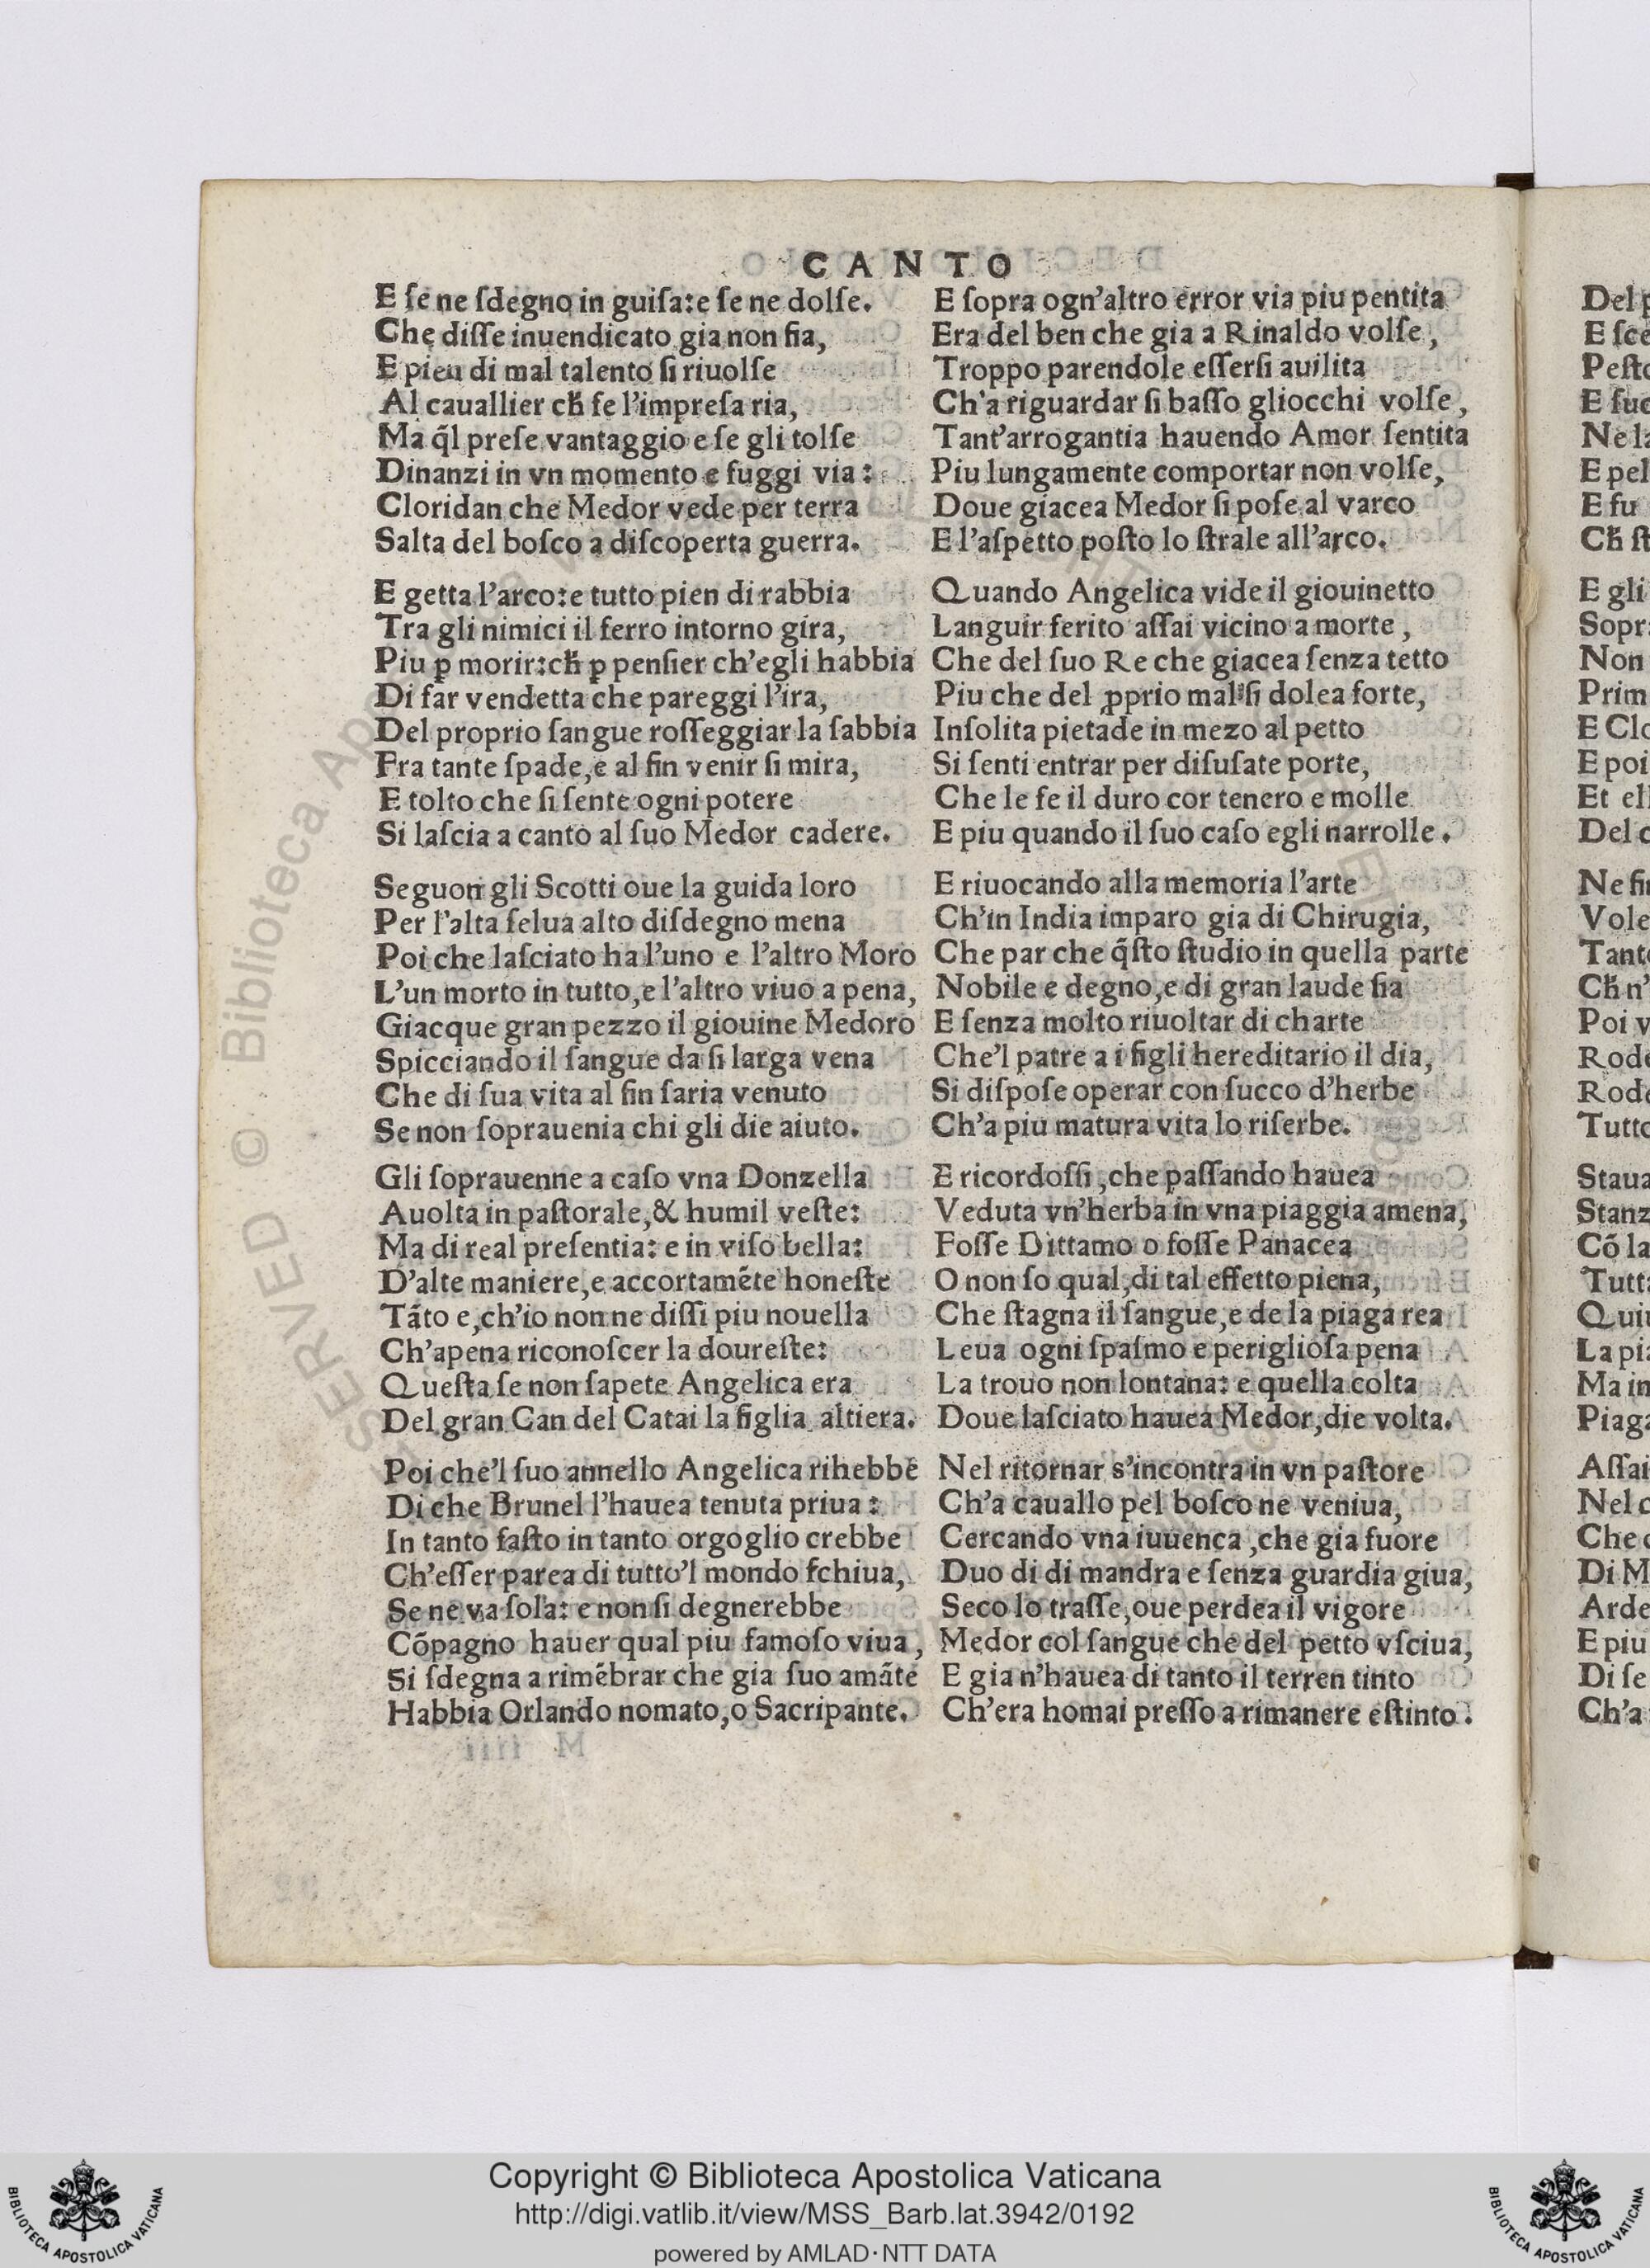 CANTO
E ſe ne ſdegno in guiſa:e ſe ne dolſe.
Che diſſe inuendicato gia non fia,
E pieu di mal talento ſi riuolſe
Al cauallier cħ fe l'impreſa ria,
Ma q̃l preſe vantaggio e ſe gli tolſe
Dinanzi in vn momento e fuggi via:
Cloridan che Medor vede per terra
Salta del boſco a diſcoperta guerra.
E getta l'arco:e tutto pien di rabbia
Tra gli nimici il ferro intorno gira,
Piu ꝑ morir:cħ ꝑ penſier ch'egli habbia
Di far vendetta che pareggi l'ira,
Del proprio ſangue roſſeggiar la ſabbia
Fra tante ſpade,e al fin venir ſi mira,
E tolto che ſi ſente ogni potere
Si laſcia a canto al ſuo Medor cadere.
Seguon gli Scotti oue la guida loro
Per l'alta ſelua alto diſdegno mena
Poi che laſciato ha l'uno e l'altro Moro
L'un morto in tutto,e l'altro viuo a pena,
Giacque gran pezzo il giouine Medoro
Spicciando il ſangue da ſi larga vena
Che di ſua vita al fin ſaria venuto
Se non ſoprauenia chi gli die aiuto.
Gli ſoprauenne a caſo vna Donzella
Auolta in paſtorale,& humil veſte:
Ma di real preſentia: e in viſo bella:
D'alte maniere,e accortamẽte honeſte
Tãto e,ch'io non ne diſſi piu nouella
Ch'apena riconoſcer la doureſte:
Queſta ſe non ſapete Angelica era
Del gran Can del Catai la figlia altiera.
Poi che'l ſuo annello Angelica rihebbe
Di che Brunel l'hauea tenuta priua:
In tanto faſto in tanto orgoglio crebbe
Ch'eſſer parea di tutto'l mondo ſchiua,
Se ne va ſola: e non ſi degnerebbe
Cõpagno hauer qual piu famoſo viua,
Si ſdegna a rimẽbrar che gia ſuo amãte
Habbia Orlando nomato,o Sacripante.
E ſopra ogn'altro error via piu pentita
Era del ben che gia a Rinaldo volſe,
Troppo parendole eſſerſi auilita
Ch'a riguardar ſi baſſo gliocchi volſe,
Tant'arrogantia hauendo Amor ſentita
Piu lungamente comportar non volſe,
Doue giacea Medor ſi poſe al varco
E l'aſpetto poſto lo ſtrale all'arco.
Quando Angelica vide il giouinetto
Languir ferito aſſai vicino a morte,
Che del ſuo Re che giacea ſenza tetto
Piu che del ꝓprio mal ſi dolea forte,
Inſolita pietade in mezo al petto
Si ſenti entrar per diſuſate porte,
Che le fe il duro cor tenero e molle
E piu quando il ſuo caſo egli narrolle.
E riuocando alla memoria l'arte
Ch'in India imparo gia di Chirugia,
Che par che q̃ſto ſtudio in quella parte
Nobile e degno,e di gran laude ſia
E ſenza molto riuoltar di charte
Che'l patre a i figli hereditario il dia,
Si diſpoſe operar con ſucco d'herbe
Ch'a piu matura vita lo riſerbe.
E ricordoſſi,che paſſando hauea
Veduta vn'herba in vna piaggia amena,
Foſſe Dittamo o foſſe Panacea
O non ſo qual,di tal effetto piena,
Che ſtagna il ſangue,e de la piaga rea
Leua ogni ſpaſmo e periglioſa pena
La trouo non lontana: e quella colta
Doue laſciato hauea Medor,die volta.
Nel ritornar s'incontra in vn paſtore
Ch'a cauallo pel boſco ne veniua,
Cercando vna iuuenca,che gia fuore
Duo di di mandra e ſenza guardia giua,
Seco lo traſſe,oue perdea il vigore
Medor col ſangue che del petto vſciua,
E gia n'hauea di tanto il terren tinto
Ch'era homai preſſo a rimanere eſtinto.
Del
E
E
Ne
E
E fu
Cħ
E gli
Non
E
E poi
Et
Del
Ne
Cħ n'
Poi
Tutto
Cõ la
Ma in
Nel
Che
Di
E piu
Di
Ch'a
© Biblioteca
Copyright © Biblioteca Apostolica Vaticana
http://digi.vatlib.it/view/MSS_Barb.lat.3942/0192
powered by AMLAD·NTT DATA
BIBLIOTECA APOSTOLICA VATICANA
BIBLIOTECA APOSTOLICA VATICANA